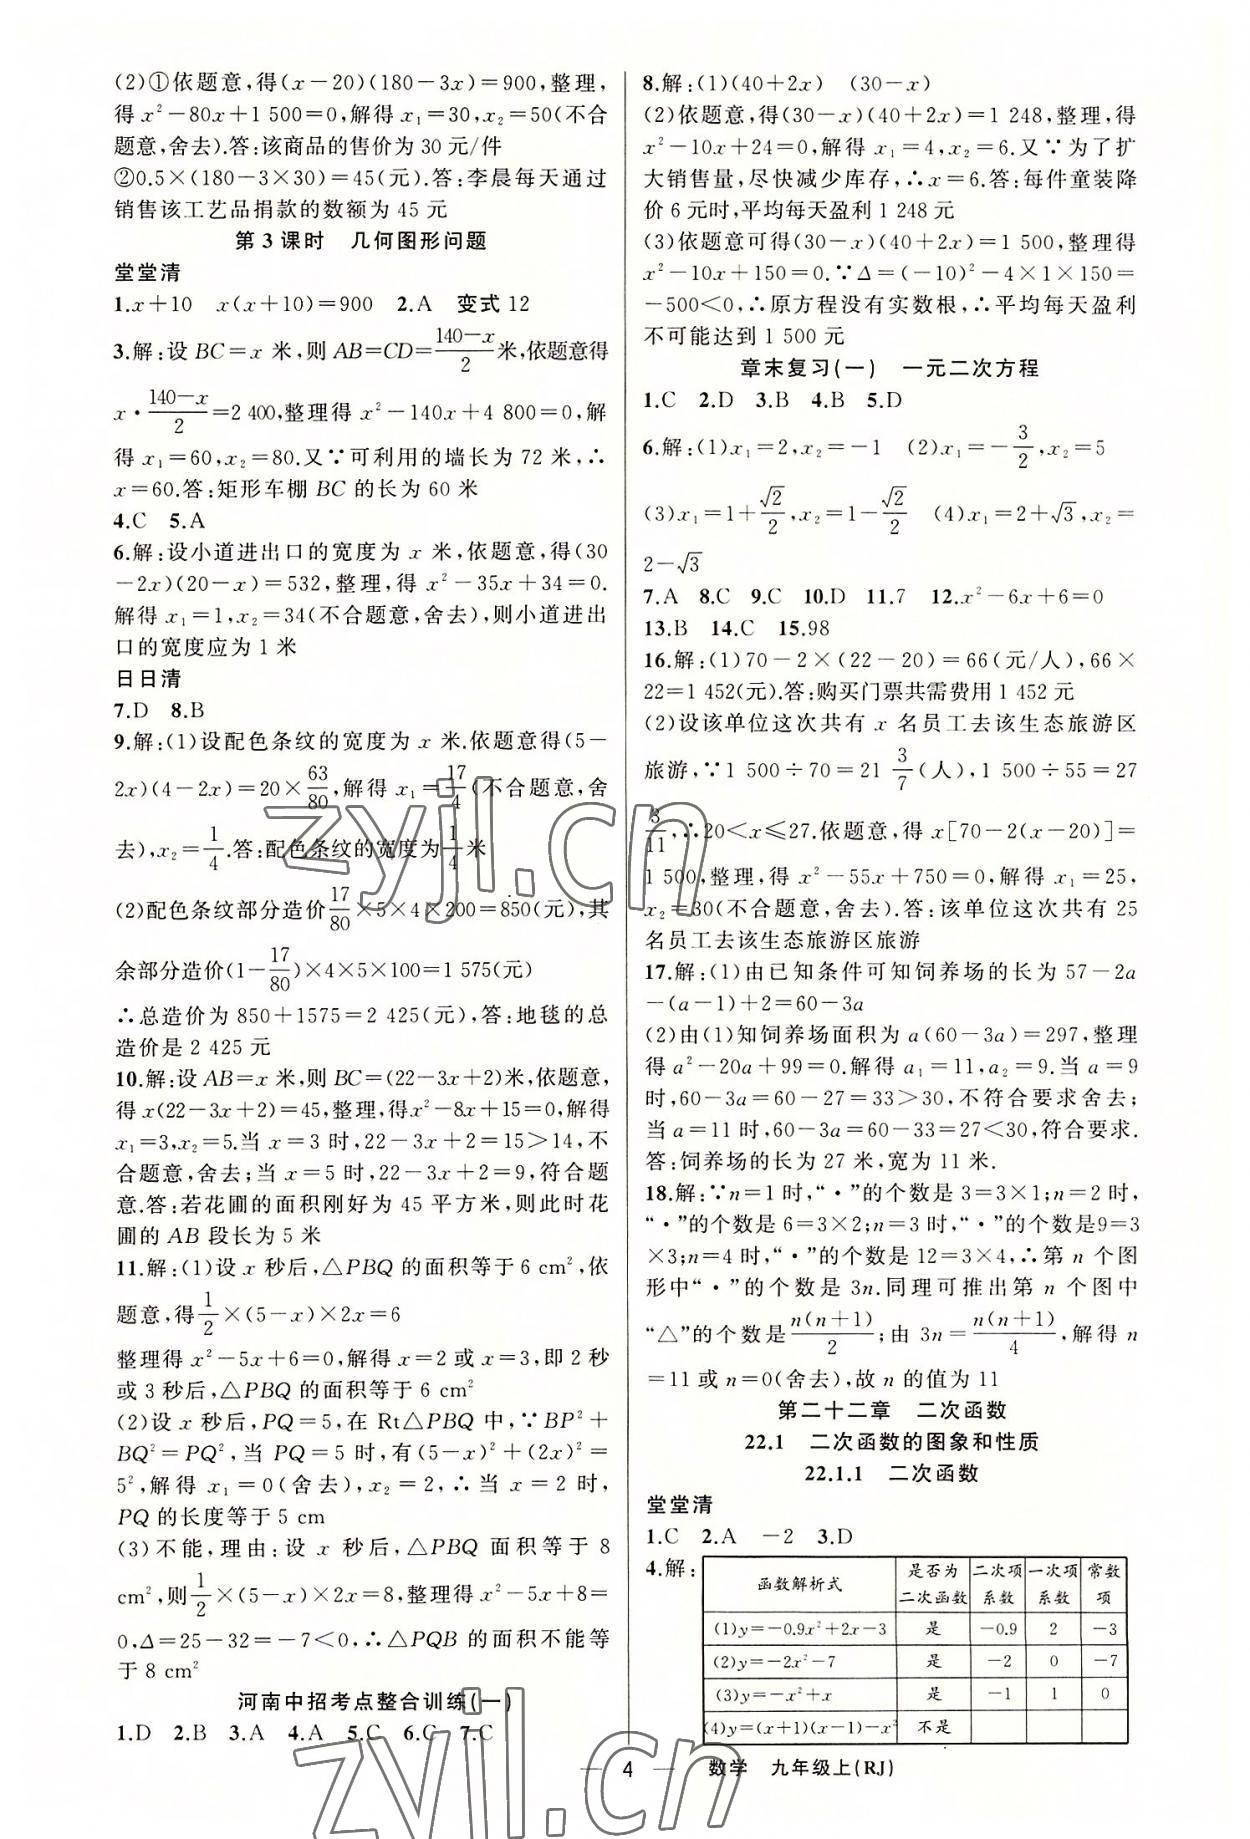 (2)①依题意,得(x-20)(180-3x)=900,整理,
得 x²-80x+1 500=0,解得 x₁=30,x₂=50(不合
题意,舍去).答:该商品的售价为 30 元/件
②0.5×(180-3×30)=45(元).答:李晨每天通过
销售该工艺品捐款的数额为 45 元
第 3 课时 几何图形问题
堂堂清
1.x+10 x(x+10)=900 2.A 变式 12
3.解:设 BC=x 米,则 AB=CD=(140-x)/2 米,依题意得
x·(140-x)/2=2 400,整理得 x²-140x+4 800=0,解
得 x₁=60,x₂=80.又∵可利用的墙长为 72 米,∴
x=60.答:矩形车棚 BC 的长为 60 米
4.C 5.A
6.解:设小道进出口的宽度为 x 米,依题意,得(30
-2x)(20-x)=532,整理,得 x²-35x+34=0.
解得 x₁=1,x₂=34(不合题意,舍去),则小道进出
口的宽度应为 1 米
日日清
7.D 8.B
9.解:(1)设配色条纹的宽度为 x 米.依题意得(5-
2x)(4-2x)=20×63/80,解得 x₁=17/4(不合题意,舍
去),x₂=1/4.答:配色条纹的宽度为1/4米
(2)配色条纹部分造价17/80×5×4×200=850(元),其
余部分造价(1-17/80)×4×5×100=1 575(元)
∴总造价为 850+1575=2 425(元),答:地毯的总
造价是 2 425 元
10.解:设 AB=x 米,则 BC=(22-3x+2)米,依题意,
得 x(22-3x+2)=45,整理,得x²-8x+15=0,解得
x₁=3,x₂=5.当 x=3 时,22-3x+2=15>14,不
合题意,舍去;当 x=5 时,22-3x+2=9,符合题
意.答:若花圃的面积刚好为 45 平方米,则此时花
圃的 AB 段长为 5 米
11.解:(1)设 x 秒后,△PBQ 的面积等于 6 cm²,依
题意,得1/2×(5-x)×2x=6
整理得 x²-5x+6=0,解得 x=2 或 x=3,即 2 秒
或 3 秒后,△PBQ 的面积等于 6 cm²
(2)设 x 秒后,PQ=5,在 Rt△PBQ 中,∵BP²+
BQ²=PQ²,当 PQ=5 时,有(5-x)²+(2x)²=
5²,解得 x₁=0(舍去),x₂=2,∴当 x=2 时,
PQ 的长度等于 5 cm
(3)不能,理由:设 x 秒后,△PBQ 面积等于 8
cm²,则1/2×(5-x)×2x=8,整理得 x²-5x+8=
0,Δ=25-32=-7<0,∴△PQB 的面积不能等
于 8 cm²
河南中招考点整合训练(一)
1.D 2.B 3.A 4.A 5.C 6.C 7.C
8.解:(1)(40+2x) (30-x)
(2)依题意,得(30-x)(40+2x)=1 248,整理,得
x²-10x+24=0,解得 x₁=4,x₂=6.又∵为了扩
大销售量,尽快减少库存,∴x=6.答:每件童装降
价 6 元时,平均每天盈利 1 248 元
(3)依题意可得(30-x)(40+2x)=1 500,整理得
x²-10x+150=0.∵Δ=(-10)²-4×1×150=
-500<0,∴原方程没有实数根,∴平均每天盈利
不可能达到 1 500 元
章末复习(一) 一元二次方程
1.C 2.D 3.B 4.B 5.D
6.解:(1)x₁=2,x₂=-1 (2)x₁=-3/2,x₂=5
(3)x₁=1+√2/2,x₂=1-√2/2 (4)x₁=2+√3,x₂=
2-√3
7.A 8.C 9.C 10.D 11.7 12.x²-6x+6=0
13.B 14.C 15.98
16.解:(1)70-2×(22-20)=66(元/人),66×
22=1 452(元).答:购买门票共需费用 1 452 元
(2)设该单位这次共有 x 名员工去该生态旅游区
旅游,∵1 500÷70=21 3/7(人),1 500÷55=27
3/11,∴20<x≤27.依题意,得 x[70-2(x-20)]=
1 500,整理,得 x²-55x+750=0,解得 x₁=25,
x₂=30(不合题意,舍去).答:该单位这次共有 25
名员工去该生态旅游区旅游
17.解:(1)由已知条件可知饲养场的长为 57-2a
-(a-1)+2=60-3a
(2)由(1)知饲养场面积为 a(60-3a)=297,整理
得 a²-20a+99=0.解得 a₁=11,a₂=9.当 a=9
时,60-3a=60-27=33>30,不符合要求舍去;
当 a=11 时,60-3a=60-33=27<30,符合要求.
答:饲养场的长为 27 米,宽为 11 米.
18.解:∵n=1 时,“·”的个数是 3=3×1;n=2 时,
“·”的个数是 6=3×2;n=3 时,“·”的个数是9=3
×3;n=4 时,“·”的个数是 12=3×4,∴第 n 个图
形中“·”的个数是 3n.同理可推出第 n 个图中
“△”的个数是n(n+1)/2;由 3n=n(n+1)/4,解得 n
=11 或 n=0(舍去),故 n 的值为 11
第二十二章 二次函数
22.1 二次函数的图象和性质
22.1.1 二次函数
堂堂清
1.C 2.A -2 3.D
4.解:
函数解析式 是否为二次函数 二次项系数 一次项系数 常数项
(1)y=-0.9x²+2x-3 是 -0.9 2 -3
(2)y=-2x²-7 是 -2 0 -7
(3)y=-x²+x 是 -1 1 0
(4)y=(x+1)(x-1)-x² 不是
4 数学 九年级上(RJ)
zyjl.cn
zyjl.cn